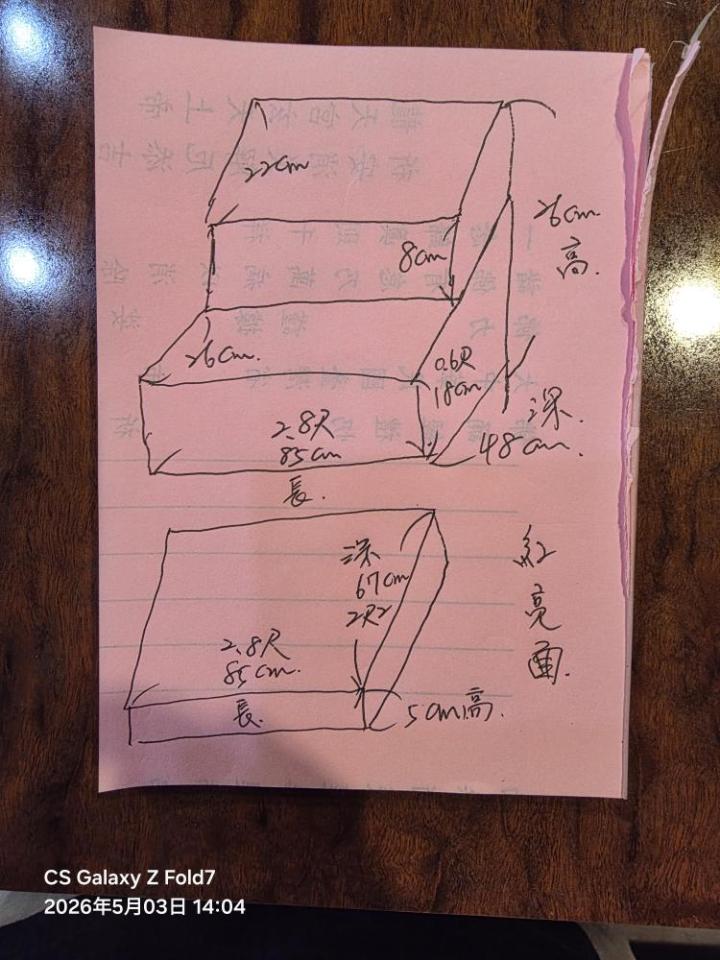 22cm
8cm
26cm
高.
26cm.
0.6尺
18cm
2.8尺
85cm
長.
深.
48cm.
深
67cm
2尺2
2.8尺
85cm.
長.
5cm高.
紅
亮
面.
CS Galaxy Z Fold7
2026年5月03日 14:04